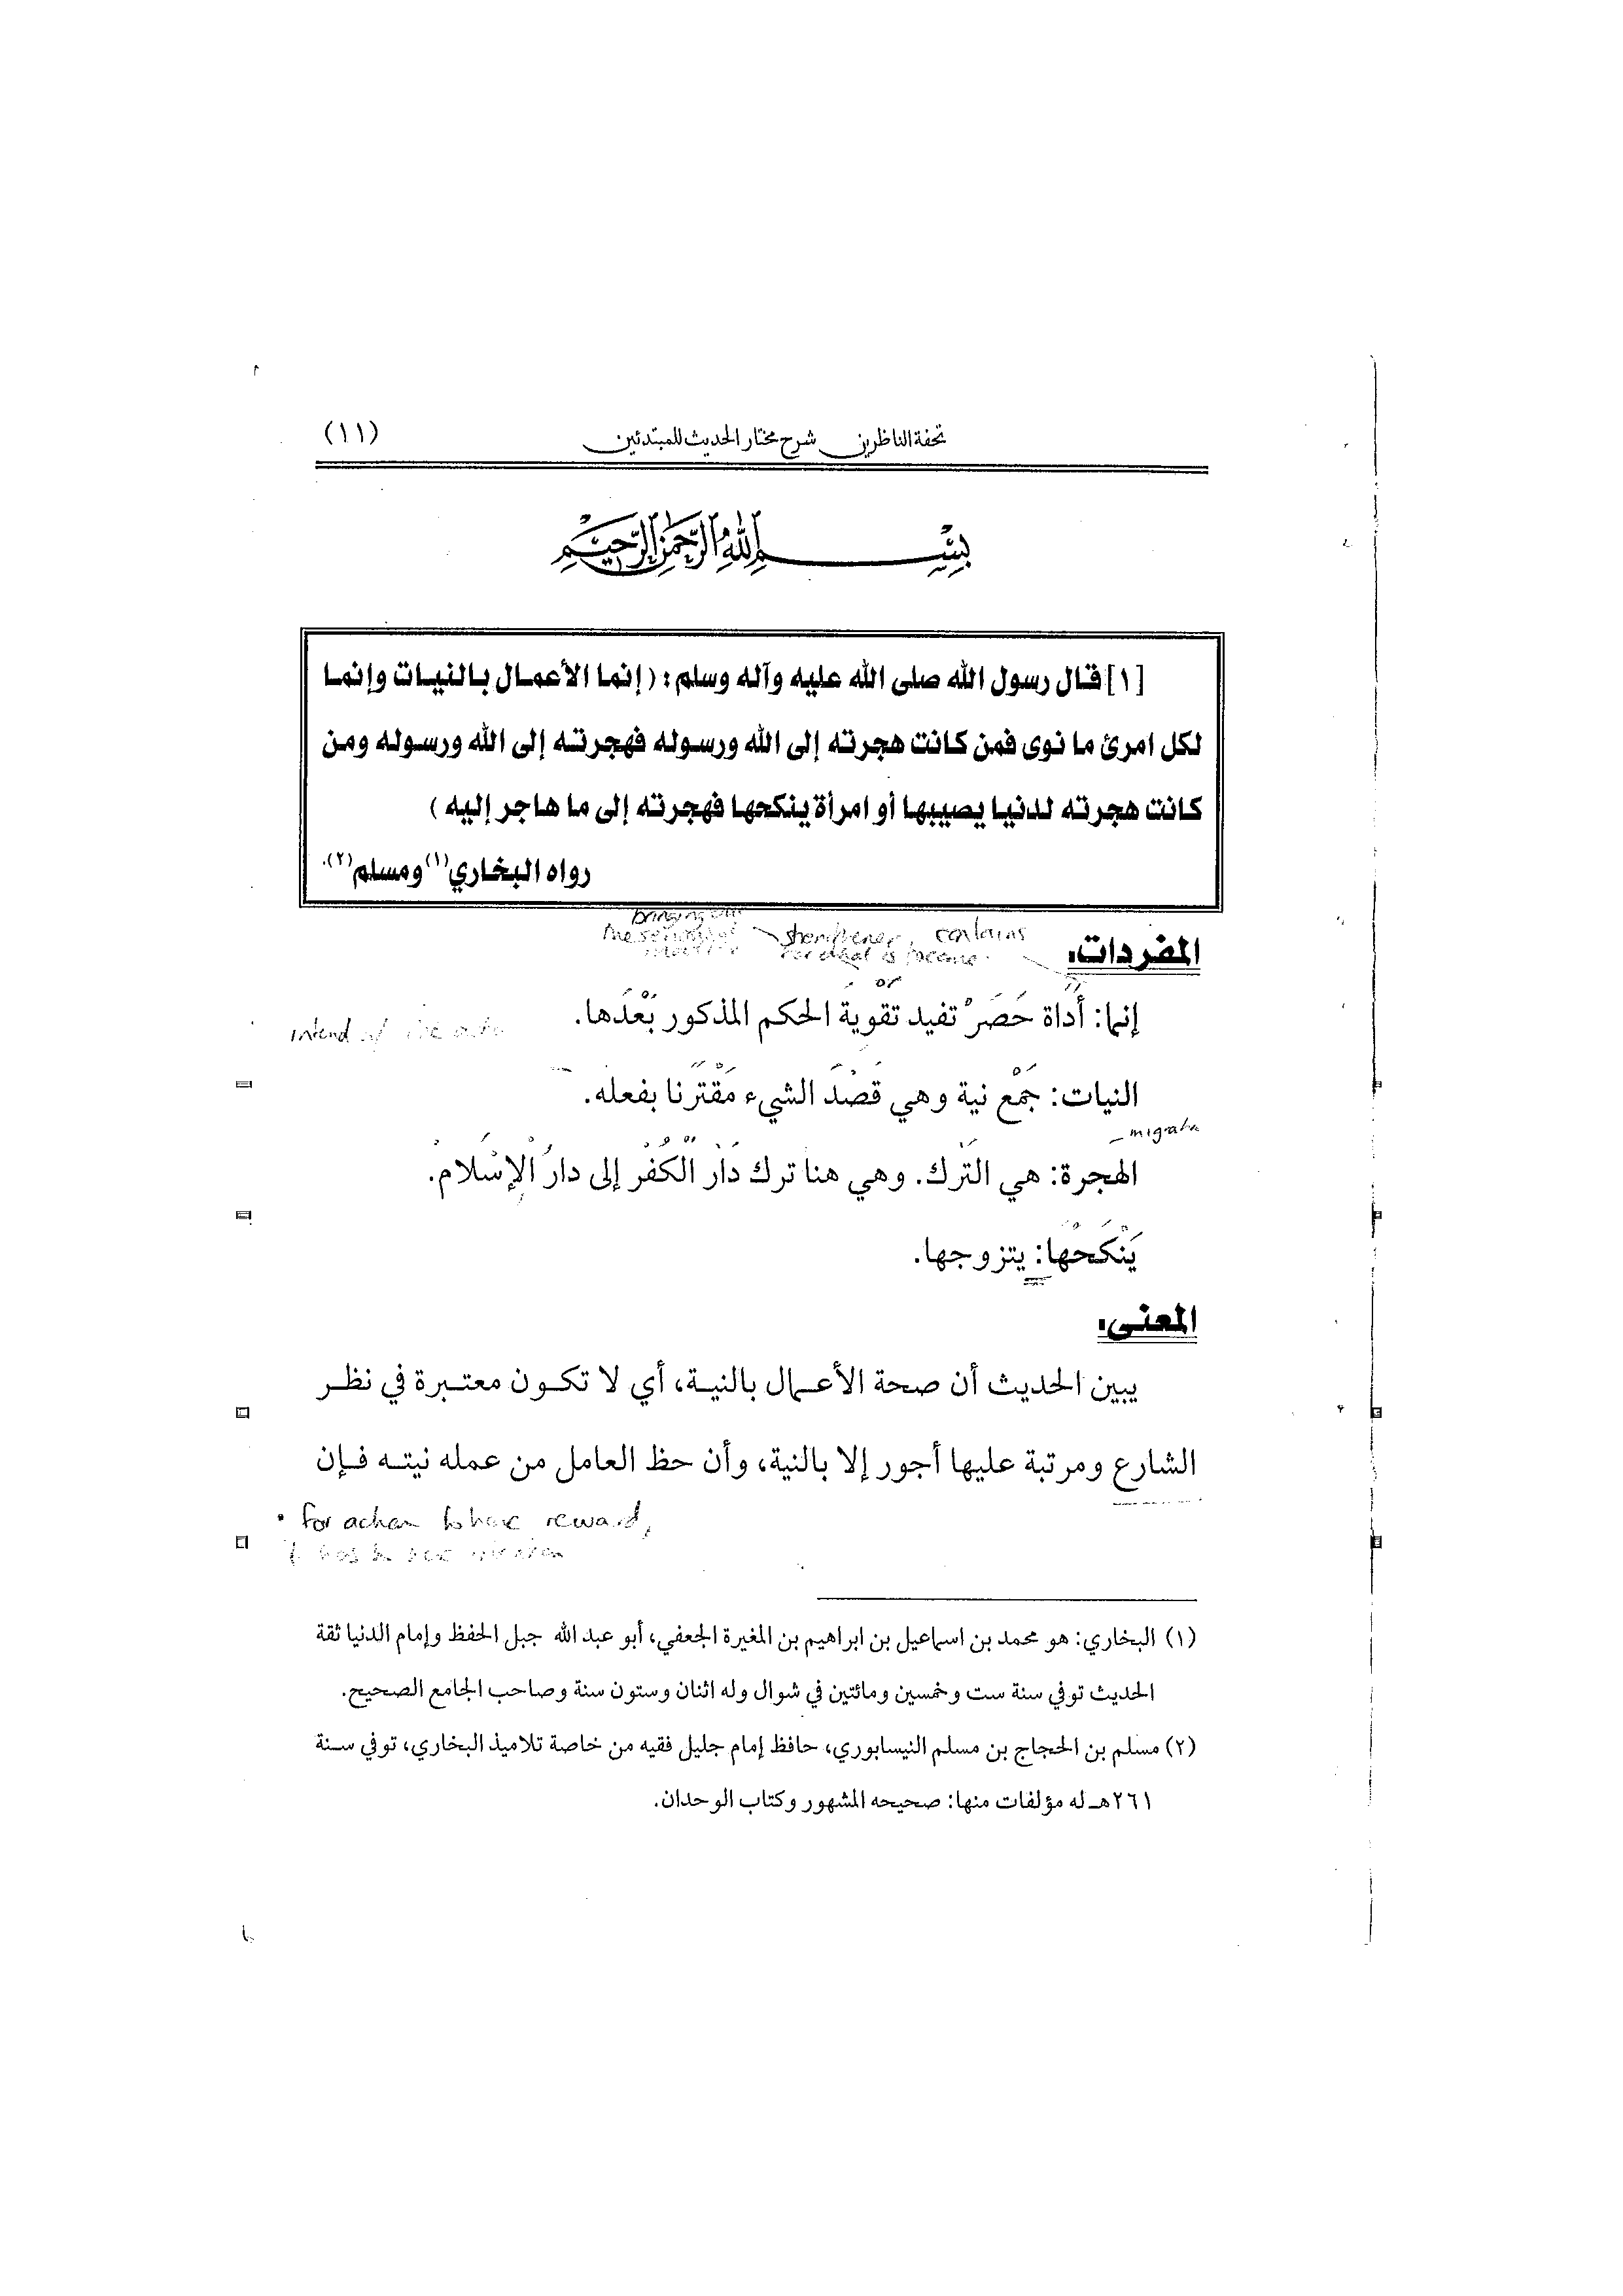 تحفة الناظرين شرح مختار الحديث للمبتدئين (١١)
بسم الله الرحمن الرحيم
[١] قال رسول الله صلى الله عليه وآله وسلم: (إنما الأعمال بالنيات وإنما
لكل امرئ ما نوى فمن كانت هجرته إلى الله ورسوله فهجرته إلى الله ورسوله ومن
كانت هجرته لدنيا يصيبها أو امرأة ينكحها فهجرته إلى ما هاجر إليه)
رواه البخاري(١) ومسلم(٢).
bringing
contains
المفردات:
or
إنما: أَداة حَصَرْ تفيد تقوية الحكم المذكور بَعْدَها.
intend of
النيات: جَمْع نية وهي قَصْدَ الشيء مَقْتَرنا بفعله.
الهجرة: هي التَرك. وهي هنا ترك دَاْر الْكُفْر إلى دارُ الْإِسْلَامْ.
يَنْكَحْها: يتزوجها.
المعنى:
يبين الحديث أن صحة الأعمال بالنية، أي لا تكون معتبرة في نظر
الشارع ومرتبة عليها أجور إلا بالنية، وأن حظ العامل من عمله نيته فإن
• for action to have reward,
(١) البخاري: هو محمد بن اسماعيل بن ابراهيم بن المغيرة الجعفي، أبو عبد الله جبل الحفظ وإمام الدنيا ثقة
الحديث توفي سنة ست وخمسين ومائتين في شوال وله اثنان وستون سنة وصاحب الجامع الصحيح.
(٢) مسلم بن الحجاج بن مسلم النيسابوري، حافظ إمام جليل فقيه من خاصة تلاميذ البخاري، توفي سنة
٢٦١هـ له مؤلفات منها: صحيحه المشهور وكتاب الوحدان.